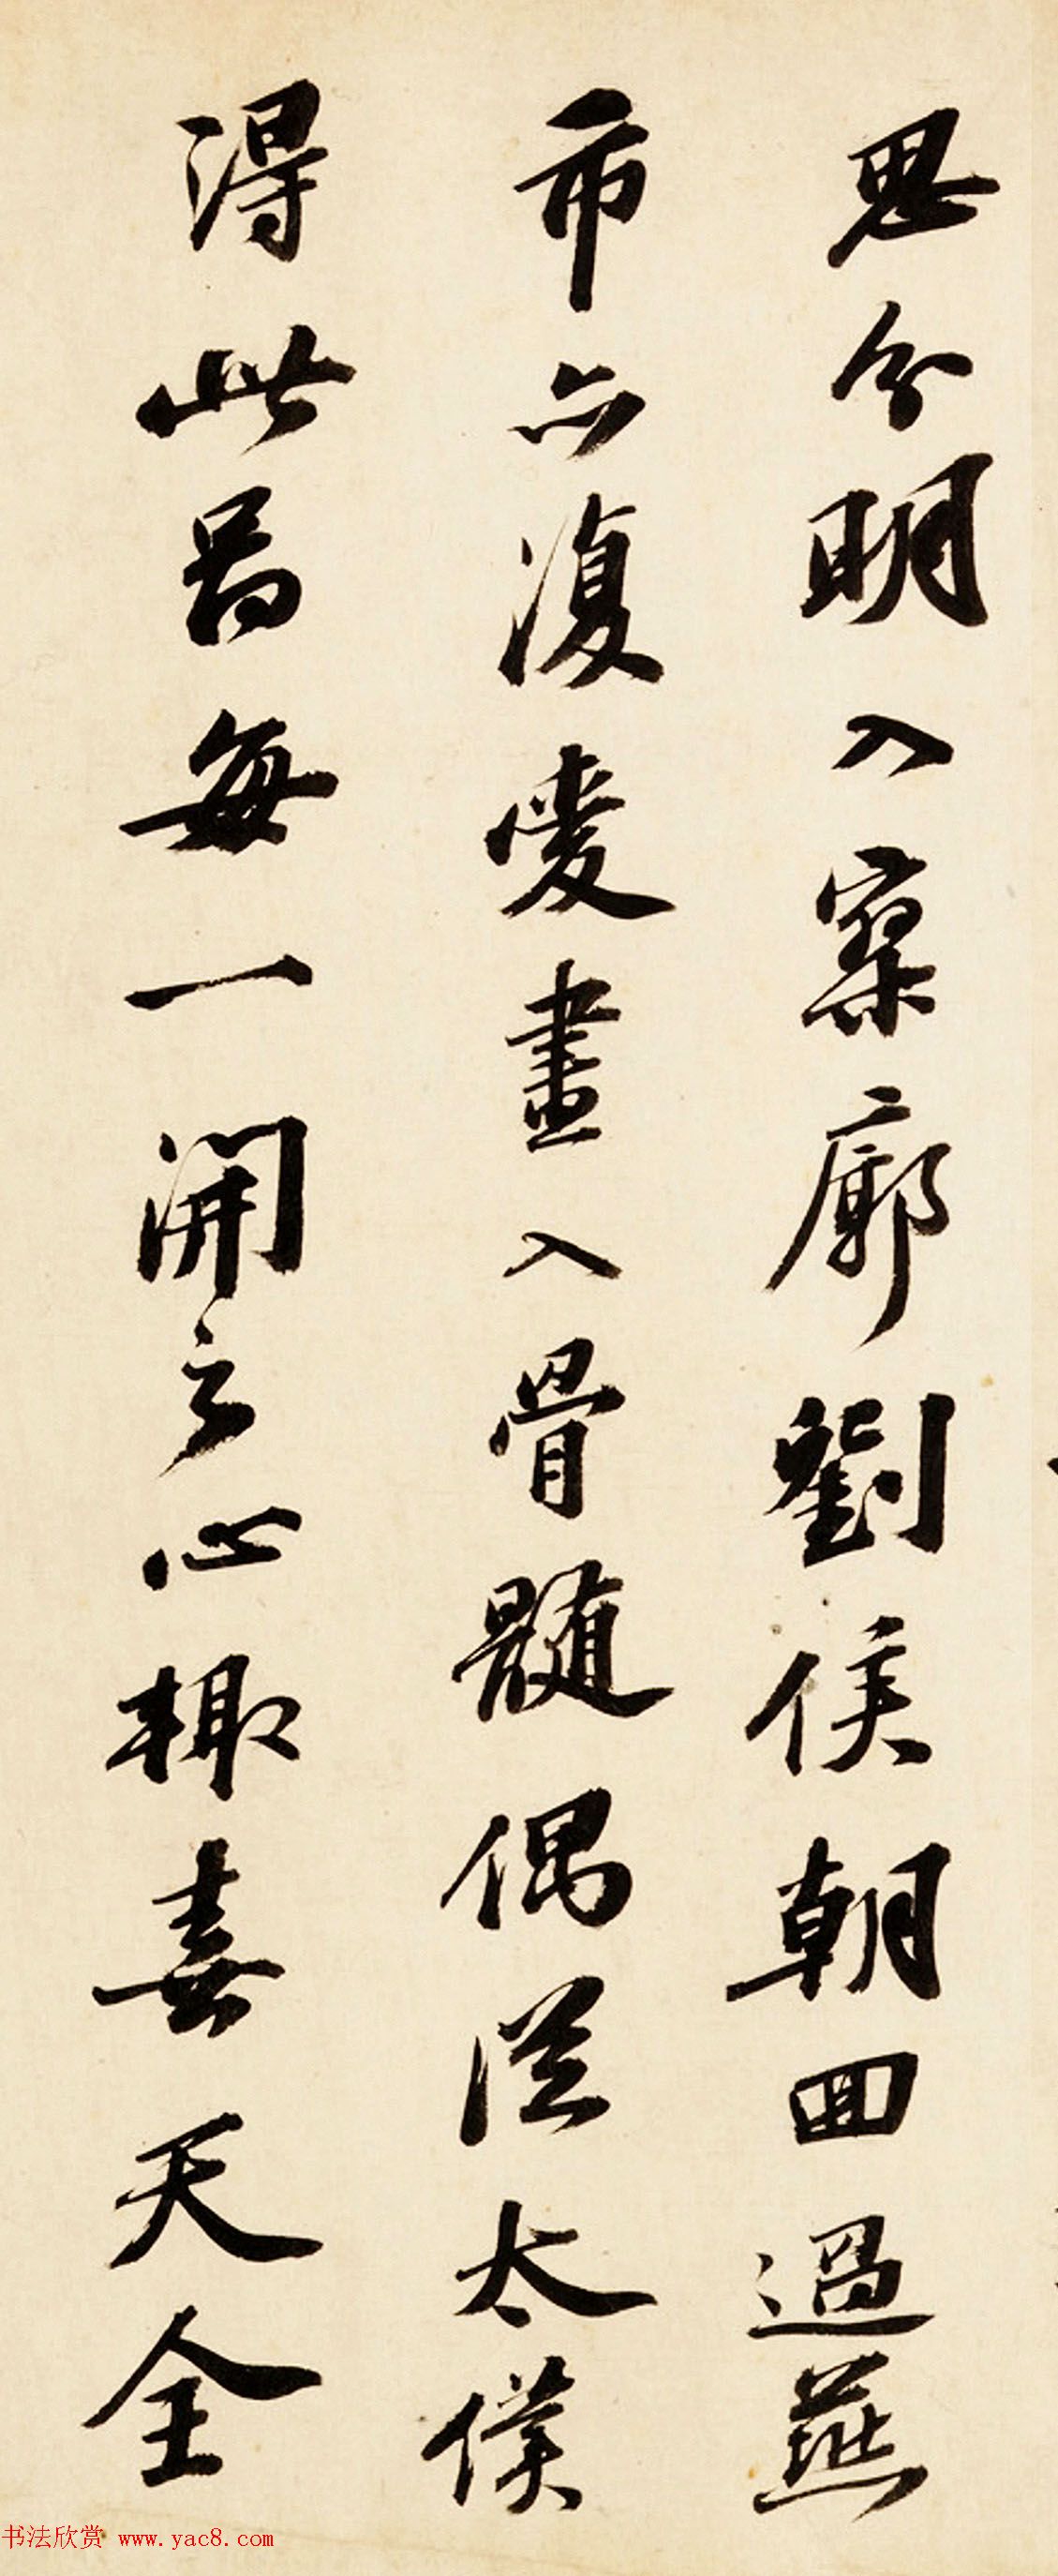 思分明入寥廓劉侯朝回過燕
市亦復愛畫入骨髓偶從太僕
得此圖每一開之心輒喜天全
书法欣赏 www.yac8.com